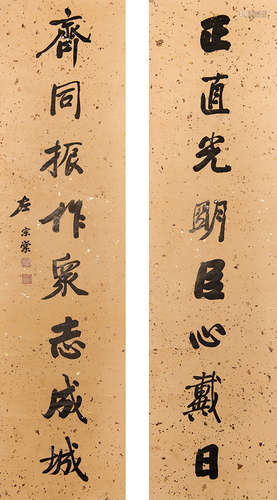 正直光明臣心戴日
齊同振作眾志成城
左宗棠